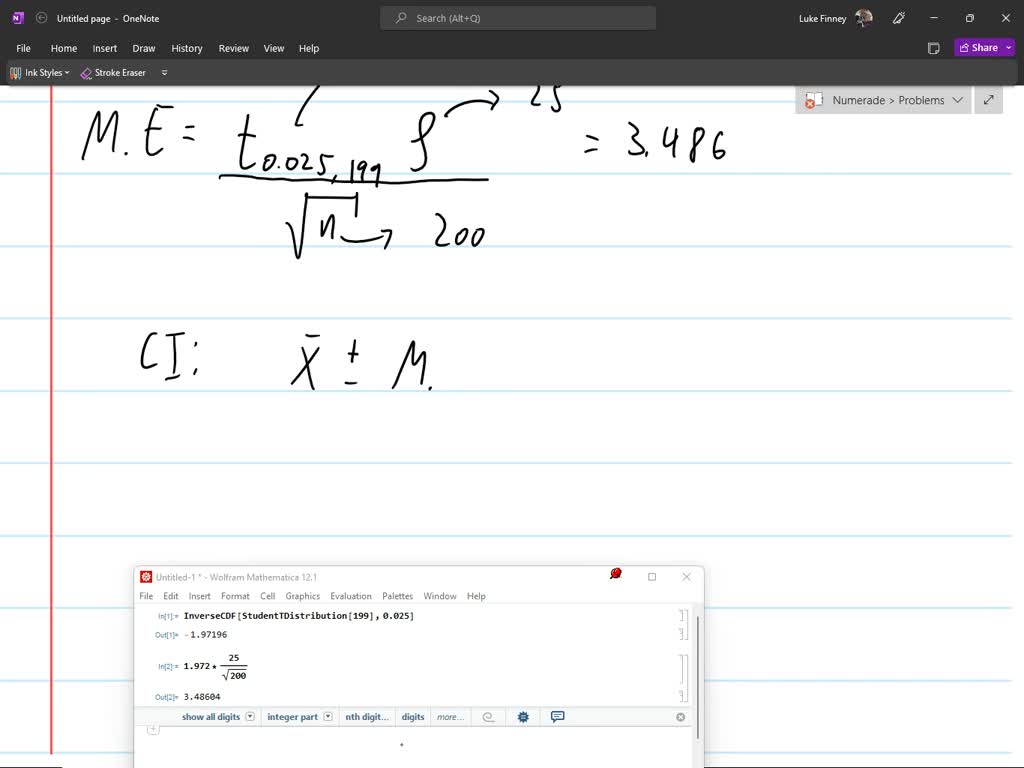 Untitled page - OneNote
Search (Alt+Q)
Luke Finney
File Home Insert Draw History Review View Help
Share
Ink Styles
Stroke Eraser
Numerade > Problems
25
M.E = t0.025, 199 S = 3.486
√n → 200
CI: X̄ ± M.
Untitled-1 * - Wolfram Mathematica 12.1
File Edit Insert Format Cell Graphics Evaluation Palettes Window Help
In[1]:= InverseCDF[StudentTDistribution[199], 0.025]
Out[1]= -1.97196
In[2]:= 1.972 * 25/√200
Out[2]= 3.48604
show all digits integer part nth digit... digits more...